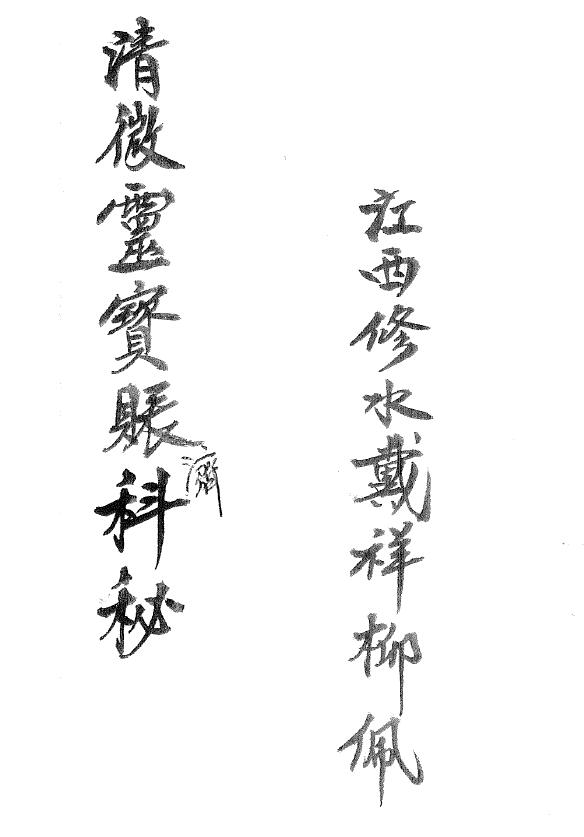 江西修水戴祥柳佩
清微靈寳賬濟科秘